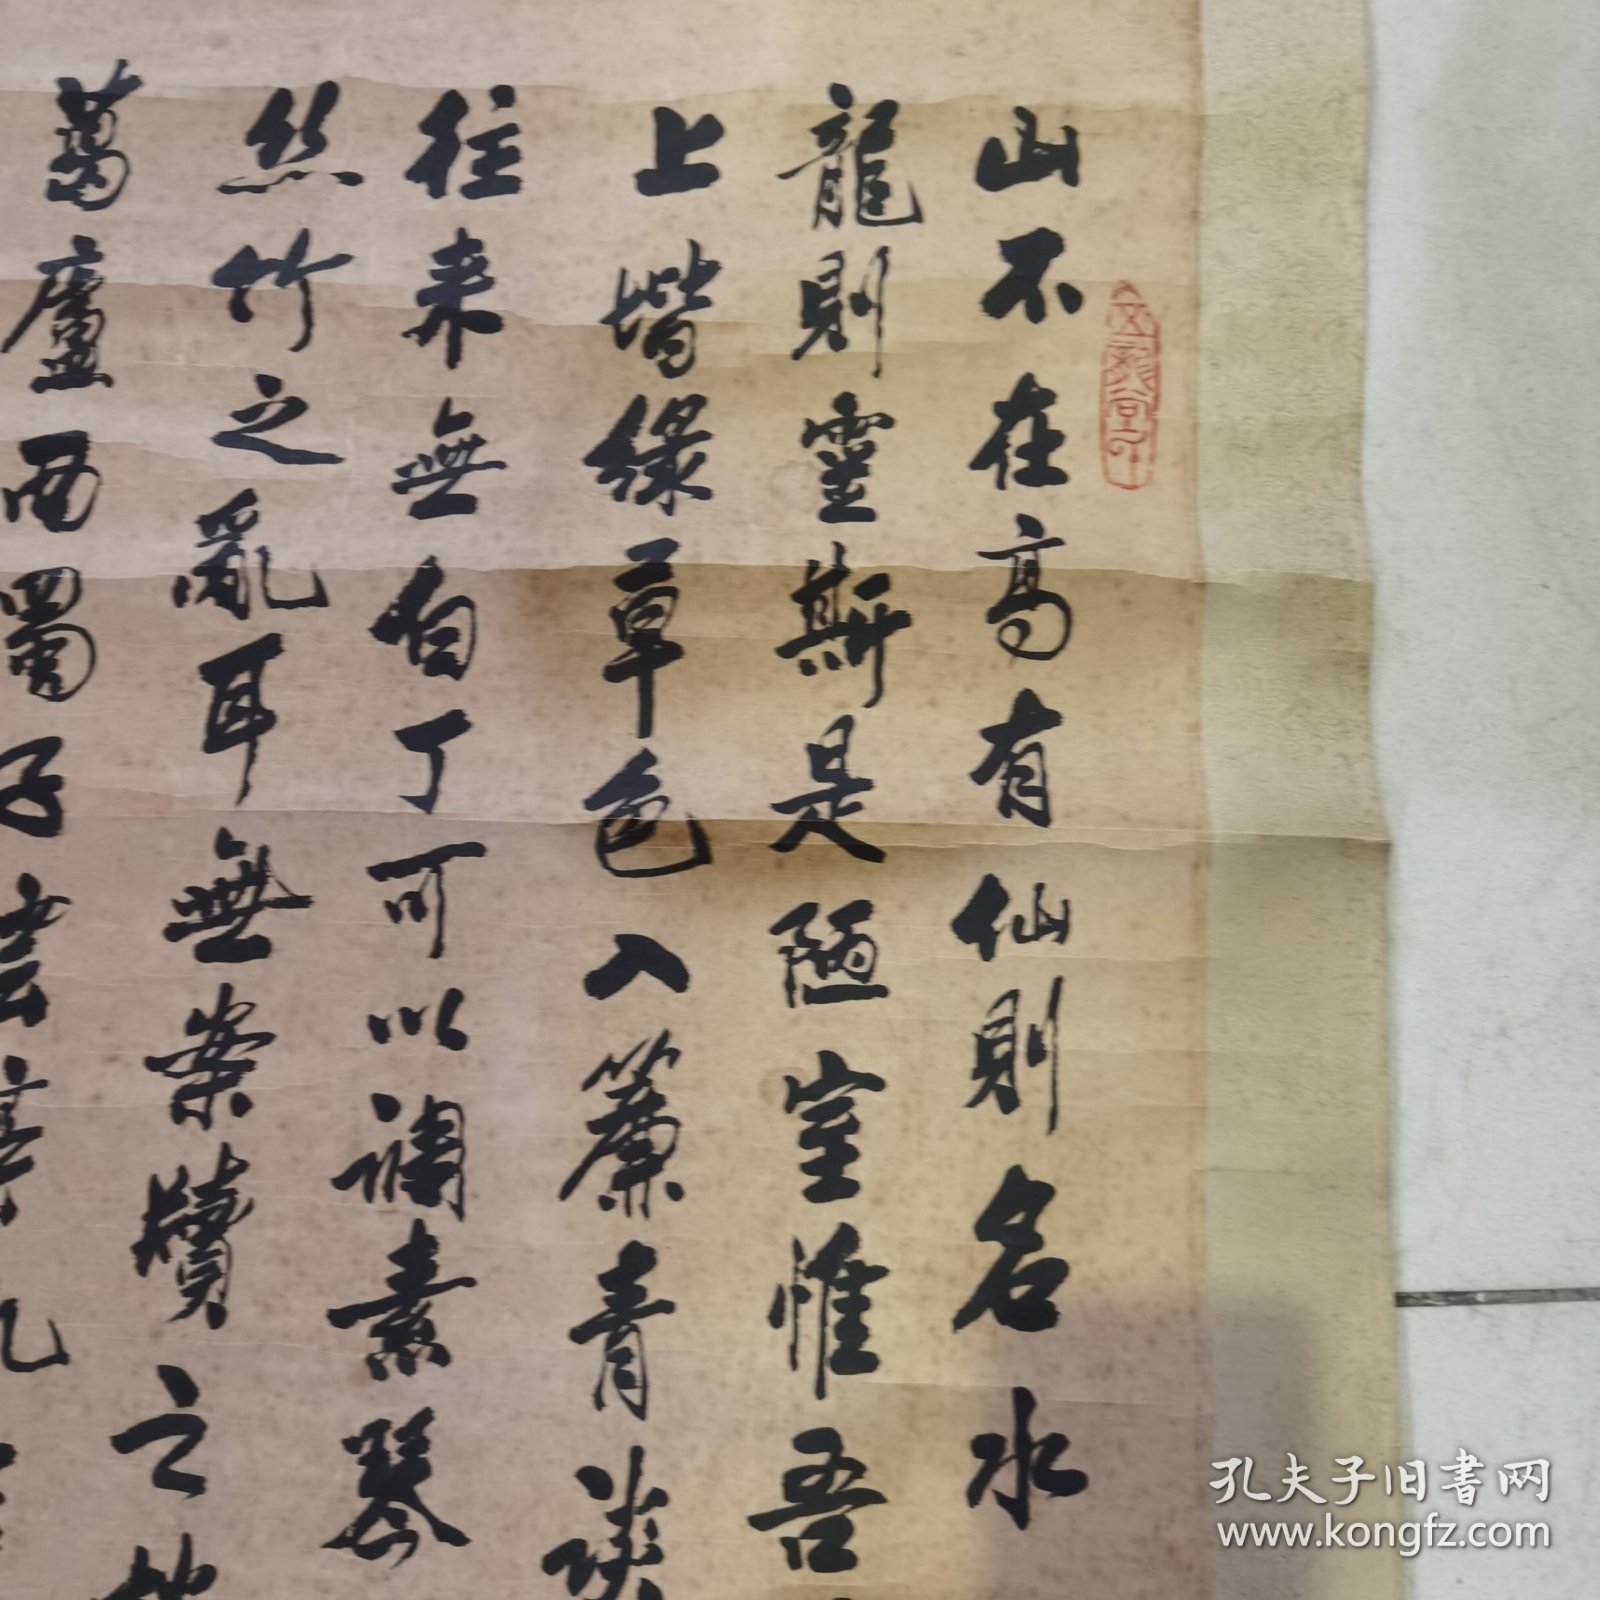 山不在高有仙則名水
龍則靈斯是陋室惟吾
上堦緣草色入簾青談
往来無白丁可以調素琴
絲竹之亂耳無案牘之地
葛廬西蜀子雲
孔夫子旧书网
www.kongfz.com